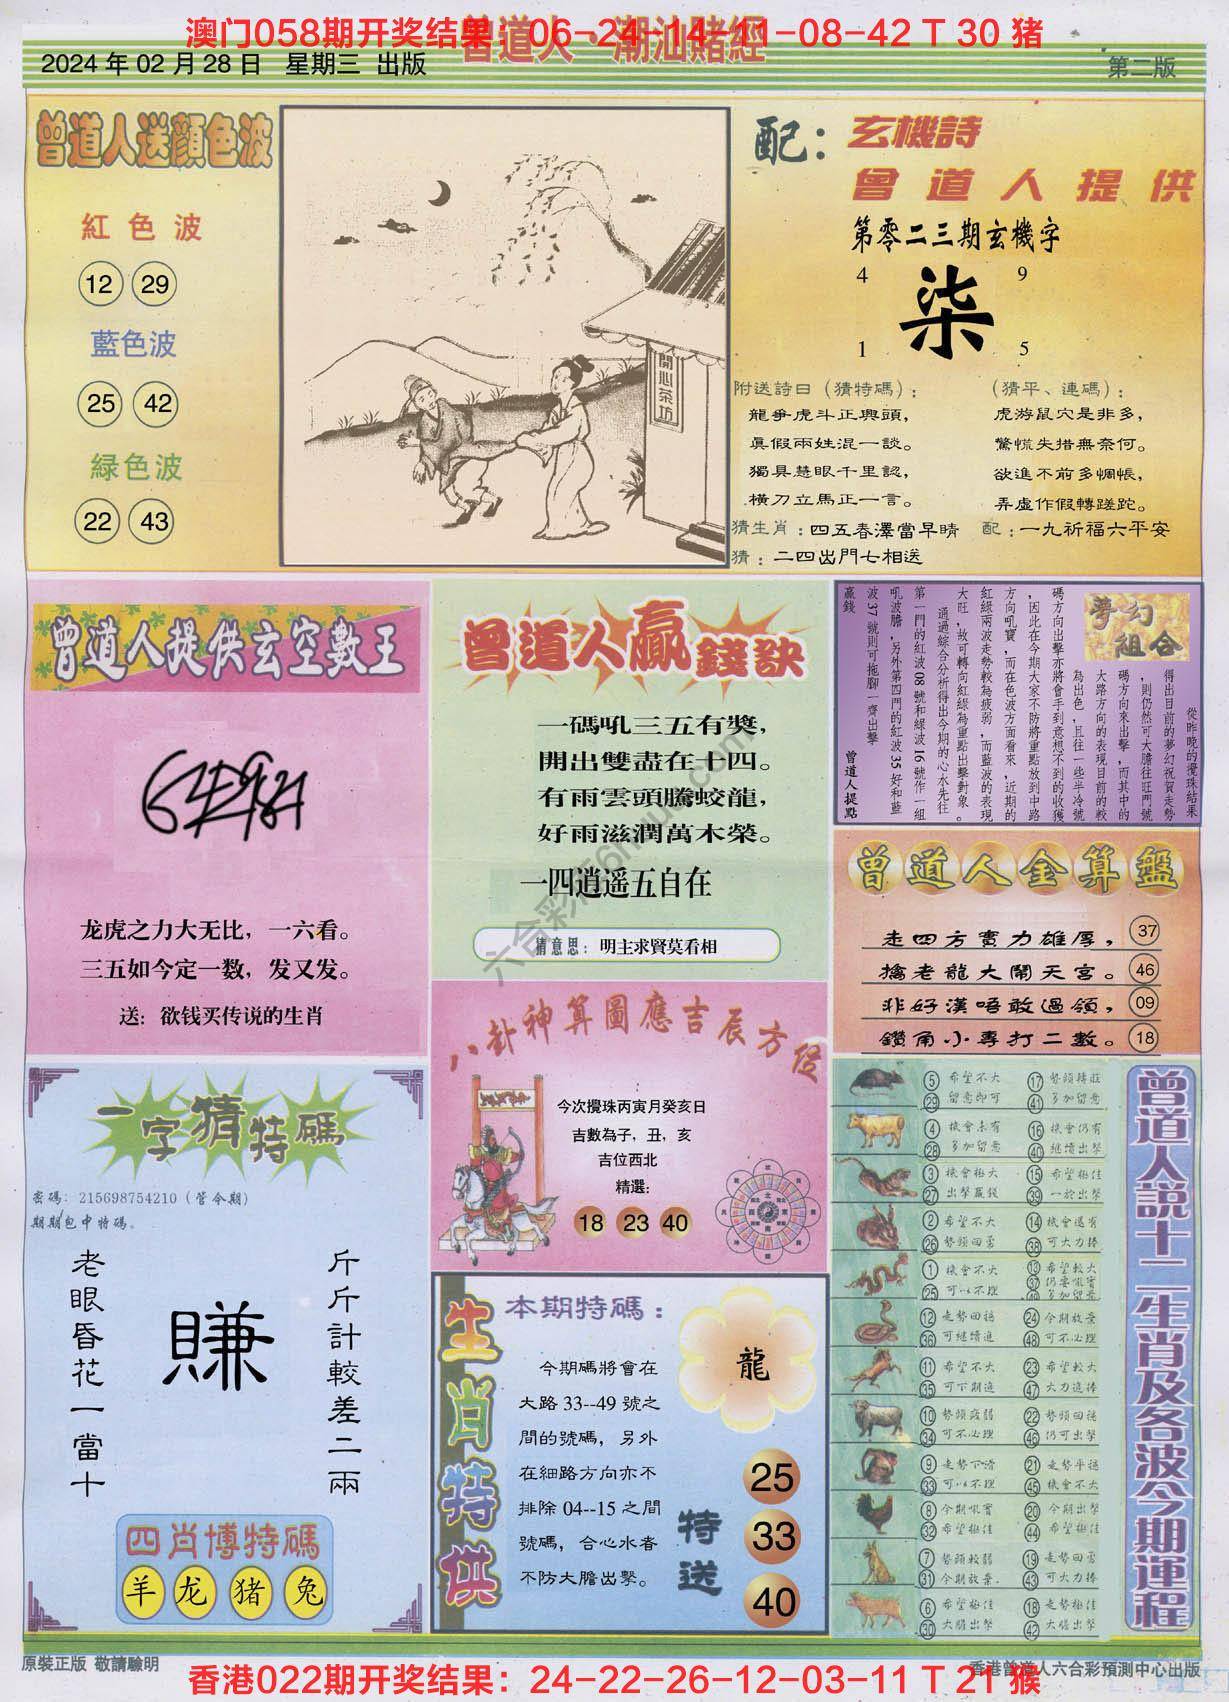 澳门058期开奖结果：06-24-14-41-08-42 T 30 猪
曾道人·潮汕賭經
2024 年 02 月 28 日 星期三 出版
第二版
曾道人送顔色波
紅色波
12 29
藍色波
25 42
緑色波
22 43
開心茶坊
配：玄機詩
曾道人提供
第零二三期玄機字
4 9
柒
1 5
附送詩曰（猜特碼）：
龍爭虎斗正興頭，
眞假兩姓混一談。
獨具慧眼千里認，
橫刀立馬正一言。
（猜平、連碼）：
虎游鼠穴是非多，
驚慌失措無奈何。
欲進不前多惆悵，
弄虛作假轉蹉跎。
猜生肖：四五春澤當早晴 配：一九祈福六平安
猜：二四出門七相送
曾道人提供玄空數王
龙虎之力大无比，一六看。
三五如今定一数，发又发。
送：欲钱买传说的生肖
曾道人贏錢訣
一碼吼三五有獎，
開出雙盡在十四。
有雨雲頭騰蛟龍，
好雨滋潤萬木榮。
一四逍遥五自在
猜意思：明主求賢莫看相
夢幻組合
從昨晚的攪珠結果
得出目前的夢幻祝賀走勢
，則仍然可大膽往旺門號
碼方向來出擊，而其中的
大路方向的表現目前的較
為出色，且往一些半冷號
碼方向出擊亦將會手到意想不到的收獲
，因此在今期大家不防將重點放到中路
方向吼寶，而在色波方面看來，近期的
紅綠兩波走勢較為疲弱，而藍波的表現
大旺，故可轉向紅綠為重點出擊對象。
通過綜合分析得出今期的心水先往
第一門的紅波 08 號和綠波 16 號作一組
吼波膽，另外第四門的紅波 35 好和藍
波 37 號則可拖腳一齊出擊
贏錢 曾道人提點
曾道人金算盤
走四方實力雄厚， 37
擒老龍大鬧天宮。 46
非好漢唔敢過領， 09
鑽角小專打二數。 18
一字猜特碼
密碼：215698754210（管令期）
期期包中特碼。
斤斤計較差二兩
賺
老眼昏花一當十
四肖博特碼
羊 龙 猪 兔
八卦神算圖應吉辰方位
今次攪珠丙寅月癸亥日
吉數為子，丑，亥
吉位西北
精選：
18 23 40
生肖特供
本期特碼：
龍
今期碼將會在
大路 33--49 號之
間的號碼，另外
在細路方向亦不
排除 04--15 之間
號碼，合心水者
不防大膽出擊。
特送
25
33
40
曾道人説十二生肖及各波今期運程
5 希望不大 17 勢頭轉旺
29 留意即可 41 多加留意
4 機會未有 16 機會仍有
28 多加留意 40 继續出擊
3 機會極大 15 希望極佳
27 出擊贏錢 39 一於出擊
2 希望不大 14 機會還有
26 勢頭回勇 38 可大力捧
1 機會不大 13 希望較大
25 可以不理 37 仍要吼實
多加留意
12 走勢回穩 24 今期放棄
36 可继續追 48 可不必理
11 希望不大 23 希望較大
35 可下期追 47 大力追捧
10 勢頭疲弱 22 勢頭回穩
34 可不必理 46 仍可出擊
9 走勢下滑 21 走勢平穩
33 可以不理 45 機會不大
8 今期吼實 20 今期出擊
32 希望極佳 44 希望極佳
7 勢頭較弱 19 走勢回勇
31 今期放棄 43 可大力捧
6 希望極佳 18 走勢極佳
30 大膽出擊 42 大膽出擊
原裝正版 敬請驗明
香港曾道人六合彩預測中心出版
香港022期开奖结果：24-22-26-12-03-11 T 21 猴